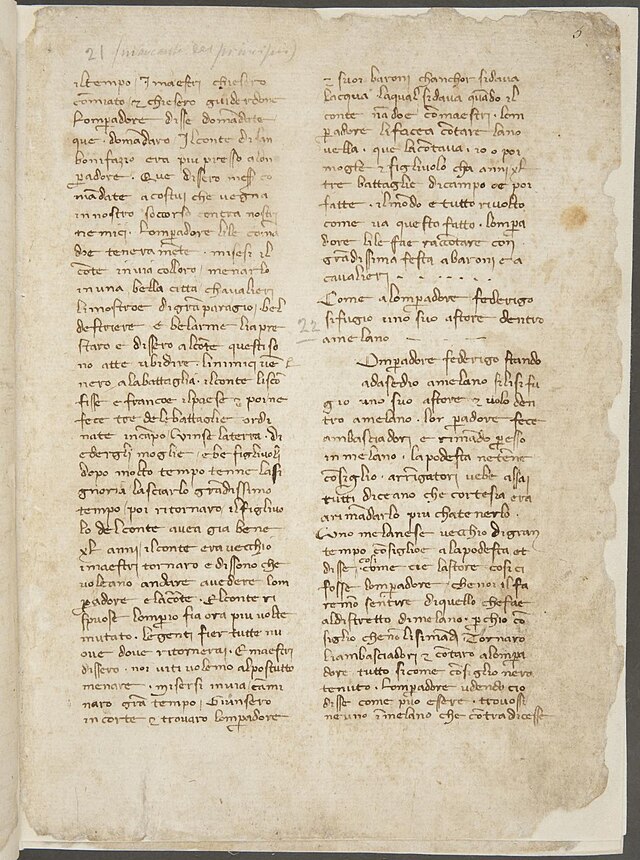 21 (mancante del principio)
5
il tempo . I maestri chiesero
comiato & chiesero guiderdone
Lomperadore disse domandate
que . domandaro Il conte di san
bonifazio era piu presso a lom
padore . Que dissero mess co
madate a costui che vegna
in nostro soccorso contra nostri
nemici . Lomperadore lile coma
doe tenera mete . misesi il
cote in via colloro . menarlo
in una bella citta chavalieri
li mostroe di gra paragio . bel
destriere e belarme lia pre
staro e dissero al cote questi so
no atte ubidire . li nimici ven
nero a la battaglia . il conte lisco
fisse e francoe il paese & poi ne
fece tre de le battaglie ordi
nate in capo . Vinse la terra . di
edergli moglie . ebe figlivoli
dopo molto tempo tenne la si
gnoria lasciarlo gradissimo
tempo . poi ritornaro . il figlivo
lo del conte avea gia bene
xl anni . il conte era vecchio
i maestri tornaro e dissono che
voleano andare avedere lom
padore e la cote . El conte ri
spuose lomperio fia ora piu volte
mutato . le genti fier tutte nu
ove dove ritornerei . E maestri
dissero . noi viti volemo al postutto
menare . misersi in via cami
naro gra tempo . Giunsero
in corte & trovaro lomperadore
& suoi baroni chanchor si dava
lacqua laqual si dava quado il
conte nadoe co maestri . lom
padore li facea cotare la no
vella . que la cotava . io o poi
moglie & figlivolo cha anni xl
tre battaglie di campo oe poi
fatte . il modo e tutto rivolto
come va questo fatto . lompa
dore lile fae raccotare con
gradissima festa a baroni e a
cavalieri
Come a lomperadore federigo
22
si fugio uno suo astore dentro
a melano
Omperadore federigo stando
ad asedio a melano si li si fu
gio uno suo astore & volo den
tro a melano . lom padore fece
ambasciadori e rimado p esso
in melano . la podesta ne tene
cosiglio . arrigatori vebe assai
tutti diceano che cortesia era
a rimadarlo piu cha tenerlo .
Uno melanese vecchio di gran
tempo cosiglioe a la podesta et
disse . come cie lastore cosi ci
fosse lomperadore . che noi il fa
remo sentire di quello che fae
al distretto di melano . p chio co
siglio che no li si madi . Tornaro
li ambasciadori & cotaro a lompa
dore tutto sicome cosiglio nera
tenuto . Lomperadore udendo cio
disse come puo essere . trovosi
neuno i melano che contradicesse